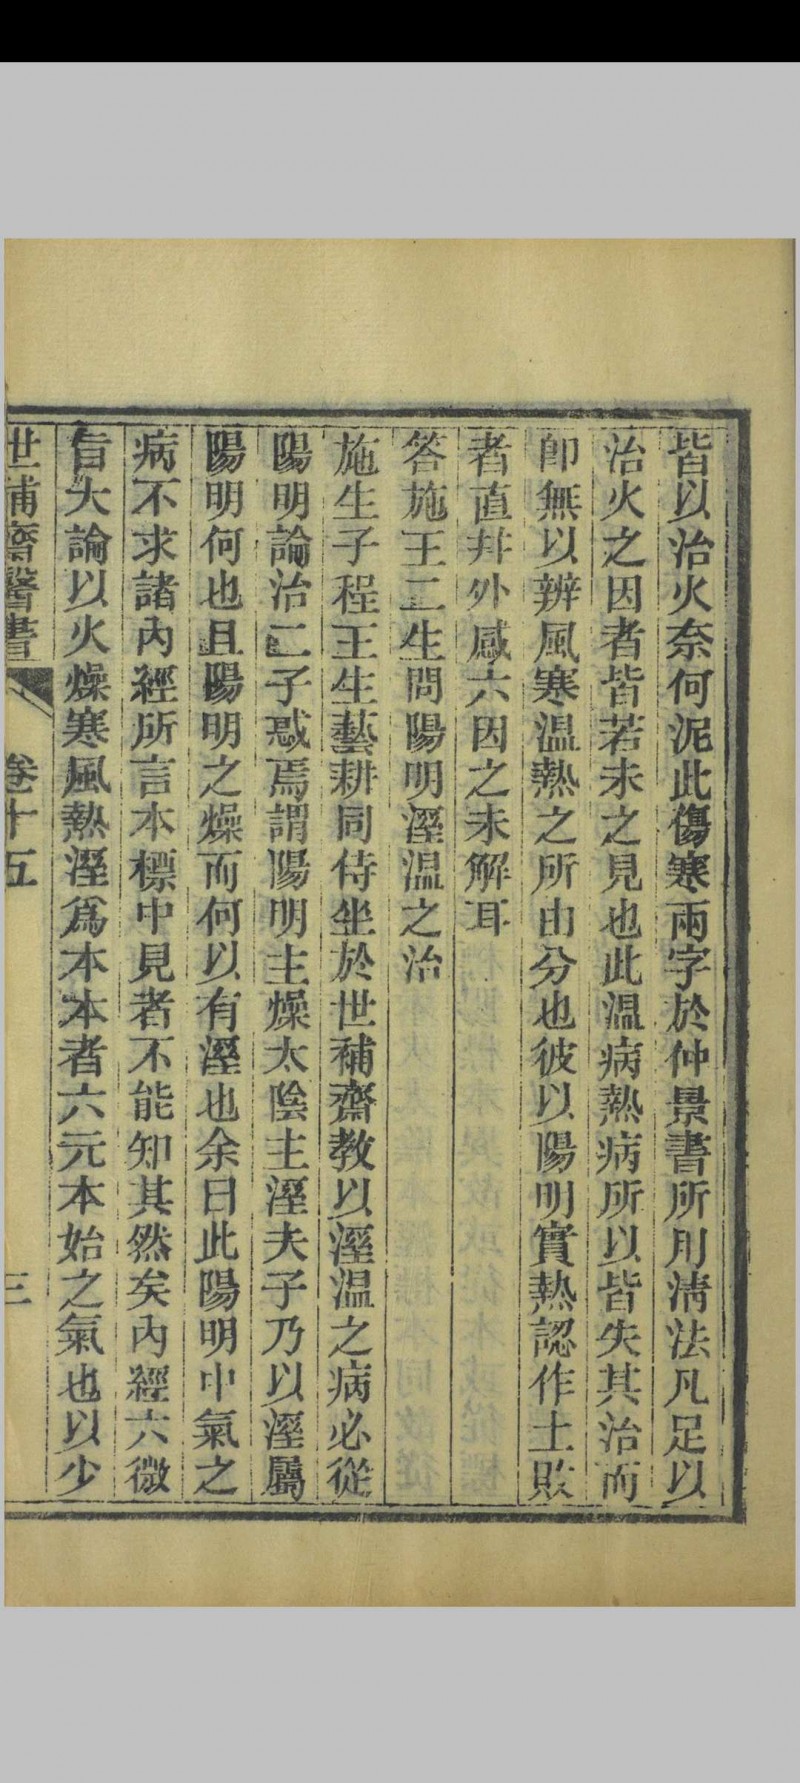 皆以治火奈何泥此傷寒兩字於仲景書所用清法凡足以
治火之因者皆若未之見也此溫病熱病所以皆失其治而
卽無以辨風寒溫熱之所由分也彼以陽明實熱認作土敗
者直幷外感六因之未解耳
答施王二生問陽明溼溫之治
施生子程王生藝耕同侍坐於世補齋教以溼溫之病必從
陽明論治二子惑焉謂陽明主燥太陰主溼夫子乃以溼屬
陽明何也且陽明之燥而何以有溼也余曰此陽明中氣之
病不求諸內經所言本標中見者不能知其然矣內經六微
旨大論以火燥寒風熱溼爲本本者六元本始之氣也以少
世補齋醫書 卷十五 三